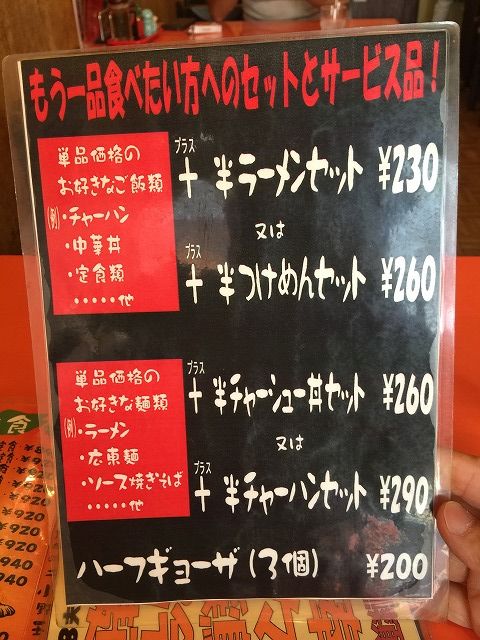 もう一品食べたい方へのセットとサービス品！
単品価格の
お好きなご飯類
(例)・チャーハン
・中華丼
・定食類
・・・・・他
プラス
＋ 半ラーメンセット ¥230
又は
プラス
＋ 半つけめんセット ¥260
単品価格の
お好きな麺類
(例)・ラーメン
・広東麺
・ソース焼きそば
・・・・・他
プラス
＋ 半チャーシュー丼セット ¥260
又は
プラス
＋ 半チャーハンセット ¥290
ハーフギョーザ(3個) ¥200
食
¥920
¥920
¥920
¥940